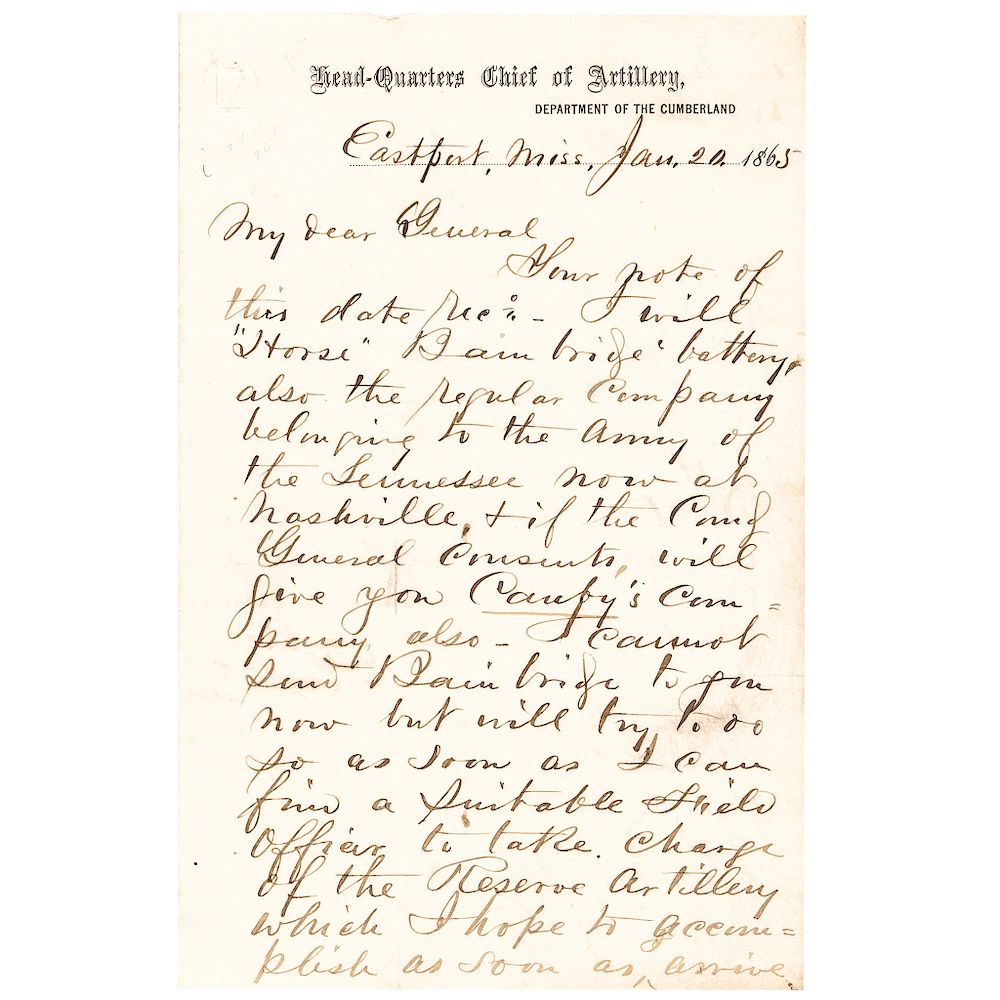 Head-Quarters Chief of Artillery,
DEPARTMENT OF THE CUMBERLAND
Eastport, Miss, Jan. 20. 1865
My dear General
Your note of
this date recd. - I will
"Horse" Bainbridge' battery,
also the regular Company
belonging to the Army of
the Tennessee now at
Nashville, & if the Comg
General consents, will
give you Canby's com=
pany also - I cannot
send Bainbridge to you
now but will try to do
so as soon as I can
find a suitable Field
Officer to take charge
of the Reserve Artillery
which I hope to accom=
plish as soon as, arrive